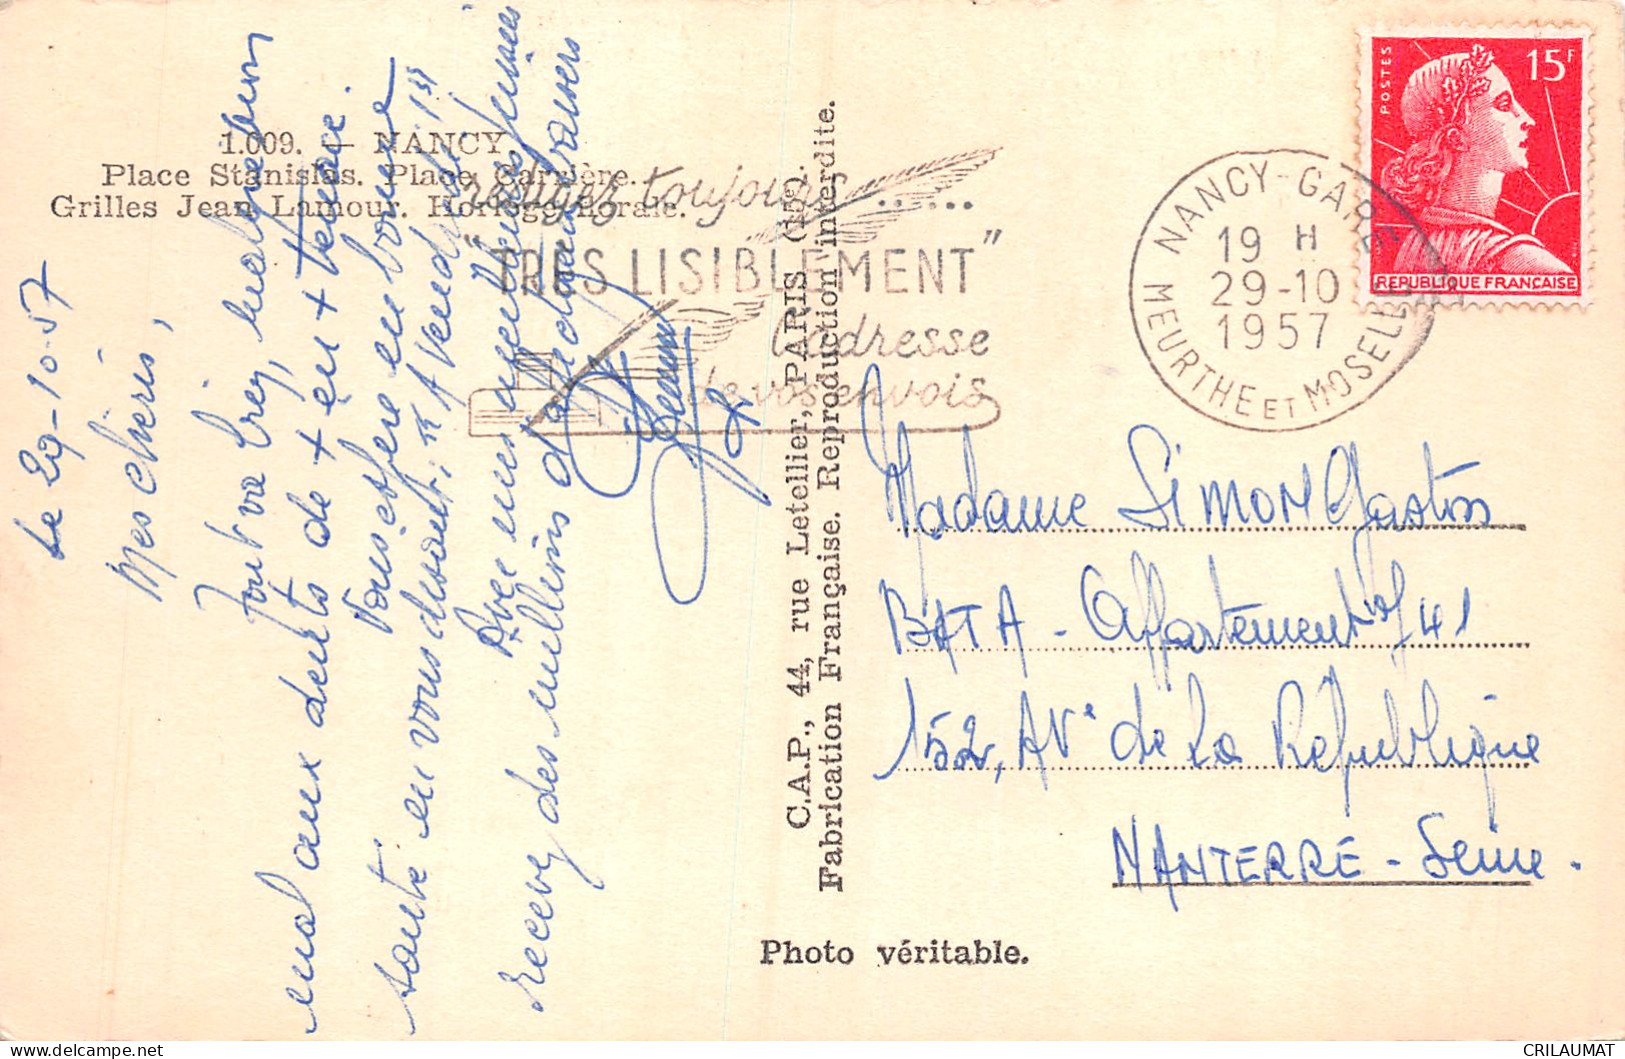 1.009. — NANCY.
Place Stanislas. Place Carrière.
Grilles Jean Lamour. Horloge florale.
rédigez toujours ......
"TRES LISIBLEMENT"
l'adresse
de vos envois
NANCY-GARE
19 H
29-10
1957
MEURTHE ET MOSELLE
POSTES
15F
REPUBLIQUE FRANÇAISE
Le 29-10-57
Mes chéris,
Tout va bien, malgré
mal aux dents de + en + tenace.
Vous espère en bonne
santé en vous disant: "A Vendredi 1er"
Avec mes
recevez des millions de baisers
C.A.P., 44, rue Letellier, PARIS (15e).
Fabrication Française. Reproduction interdite.
Photo véritable.
Madame SIMON Gaston
BATA - Appartement 41
152, AVe de La République
NANTERRE - Seine.
CRILAUMAT